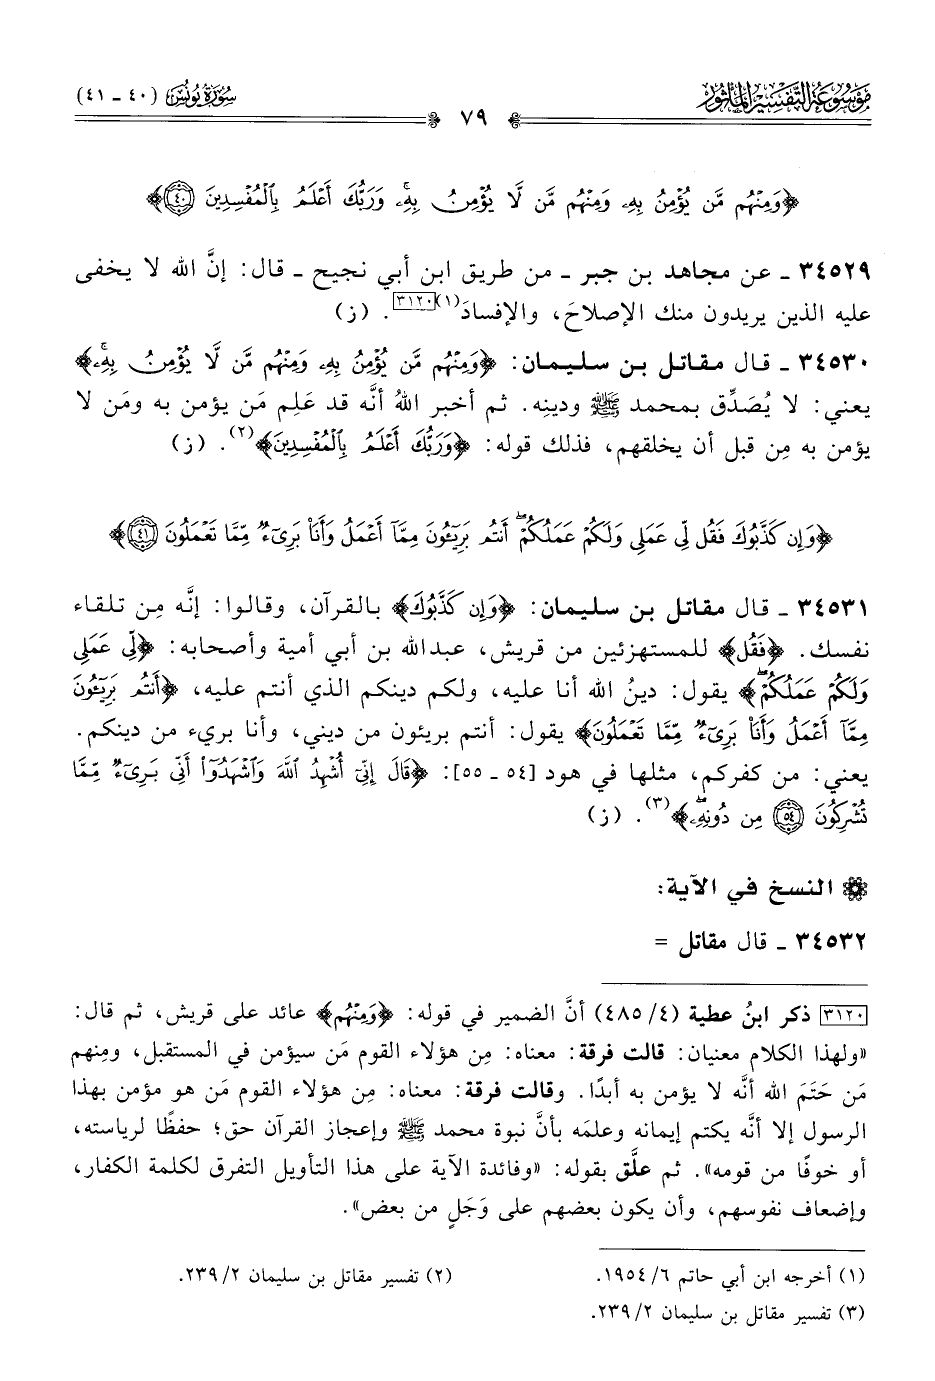 مَوْسُوعَةُ التَّفْسِيْرِ المَأْثُور
سُورَةُ يُونُس (٤٠ - ٤١)
٧٩
﴿وَمِنْهُم مَّن يُؤْمِنُ بِهِۦ وَمِنْهُم مَّن لَّا يُؤْمِنُ بِهِۦۚ وَرَبُّكَ أَعْلَمُ بِالْمُفْسِدِينَ ٤٠﴾
٣٤٥٢٩ ـ عن مجاهد بن جبر ـ من طريق ابن أبي نجيح ـ قال: إنَّ الله لا يخفى
عليه الذين يريدون منك الإصلاحَ، والإفسادَ(١)[٣١٢٠]. (ز)
٣٤٥٣٠ ـ قال مقاتل بن سليمان: ﴿وَمِنْهُم مَّن يُؤْمِنُ بِهِۦ وَمِنْهُم مَّن لَّا يُؤْمِنُ بِهِۦۚ﴾
يعني: لا يُصَدِّق بمحمد ﷺ ودينِه. ثم أخبر اللهُ أنَّه قد عَلِم مَن يؤمن به ومَن لا
يؤمن به مِن قبل أن يخلقهم، فذلك قوله: ﴿وَرَبُّكَ أَعْلَمُ بِالْمُفْسِدِينَ﴾(٢). (ز)
﴿وَإِن كَذَّبُوكَ فَقُل لِّى عَمَلِى وَلَكُمْ عَمَلُكُمْۖ أَنتُم بَرِيٓـُٔونَ مِمَّآ أَعْمَلُ وَأَنَا۠ بَرِىٓءٌ مِّمَّا تَعْمَلُونَ ٤١﴾
٣٤٥٣١ ـ قال مقاتل بن سليمان: ﴿وَإِن كَذَّبُوكَ﴾ بالقرآن، وقالوا: إنَّه مِن تلقاء
نفسك. ﴿فَقُل﴾ للمستهزئين من قريش، عبدالله بن أبي أمية وأصحابه: ﴿لِّى عَمَلِى
وَلَكُمْ عَمَلُكُمْۖ﴾ يقول: دينُ الله أنا عليه، ولكم دينكم الذي أنتم عليه، ﴿أَنتُم بَرِيٓـُٔونَ
مِمَّآ أَعْمَلُ وَأَنَا۠ بَرِىٓءٌ مِّمَّا تَعْمَلُونَ﴾ يقول: أنتم بريئون من ديني، وأنا بريء من دينكم.
يعني: من كفركم، مثلها في هود [٥٤ ـ ٥٥]: ﴿قَالَ إِنِّىٓ أُشْهِدُ اللَّهَ وَاشْهَدُوٓا۟ أَنِّى بَرِىٓءٌ مِّمَّا
تُشْرِكُونَ ٥٤ مِن دُونِهِۦۖ﴾(٣). (ز)
النسخ في الآية:
٣٤٥٣٢ ـ قال مقاتل =
[٣١٢٠] ذكر ابنُ عطية (٤/ ٤٨٥) أنَّ الضمير في قوله: ﴿وَمِنْهُم﴾ عائد على قريش، ثم قال:
«ولهذا الكلام معنيان: قالت فرقة: معناه: مِن هؤلاء القوم مَن سيؤمن في المستقبل، ومنهم
مَن حَتَمَ الله أنَّه لا يؤمن به أبدًا. وقالت فرقة: معناه: مِن هؤلاء القوم مَن هو مؤمن بهذا
الرسول إلا أنَّه يكتم إيمانه وعلمَه بأنَّ نبوة محمد ﷺ وإعجاز القرآن حق؛ حفظًا لرياسته،
أو خوفًا من قومه». ثم علَّق بقوله: «وفائدة الآية على هذا التأويل التفرق لكلمة الكفار،
وإضعاف نفوسهم، وأن يكون بعضهم على وَجَلٍ من بعض».
(١) أخرجه ابن أبي حاتم ٦/ ١٩٥٤.
(٢) تفسير مقاتل بن سليمان ٢/ ٢٣٩.
(٣) تفسير مقاتل بن سليمان ٢/ ٢٣٩.